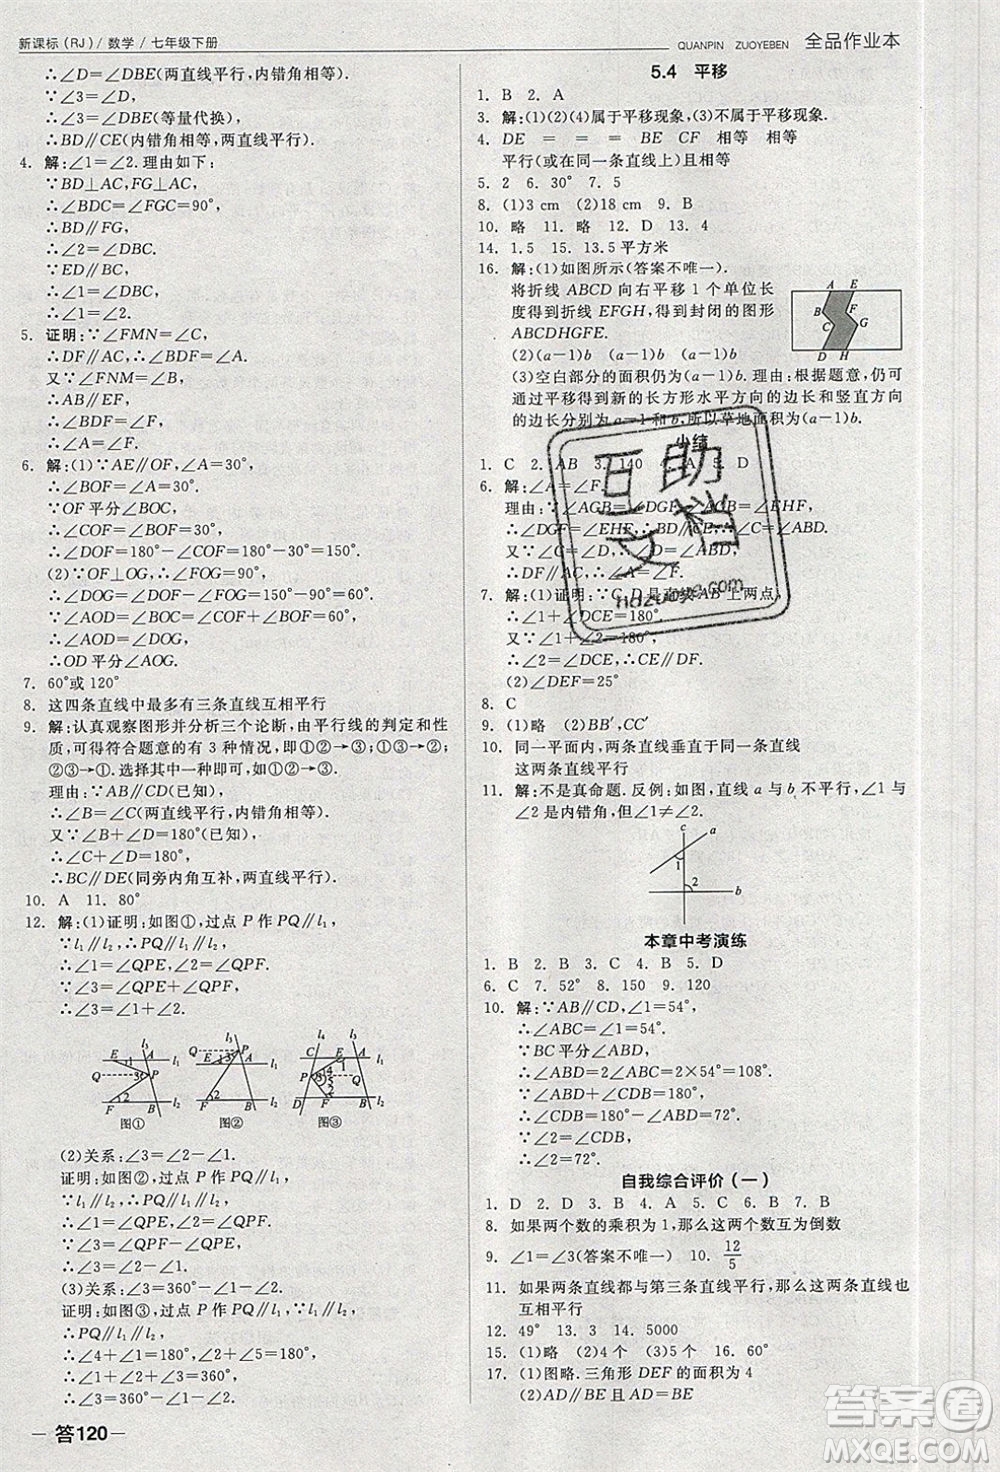 新课标(RJ)/数学/七年级下册
QUANPIN ZUOYEBEN 全品作业本
∴∠D=∠DBE(两直线平行,内错角相等).
∵∠3=∠D,
∴∠3=∠DBE(等量代换),
∴BD∥CE(内错角相等,两直线平行).
4. 解:∠1=∠2.理由如下:
∵BD⊥AC,FG⊥AC,
∴∠BDC=∠FGC=90°,
∴BD∥FG,
∴∠2=∠DBC.
∵DE∥BC,
∴∠1=∠DBC,
∴∠1=∠2.
5. 证明:∵∠FMN=∠C,
∴DF∥AC,∴∠BDF=∠A.
又∵∠FNM=∠B,
∴AB∥EF,
∴∠F=∠BDF,
∴∠A=∠F.
6. 解:(1)∵AE∥OF,∠A=30°,
∴∠BOF=∠A=30°.
∵OF平分∠BOC,
∴∠COF=∠BOF=30°,
∴∠DOF=180°-∠COF=150°.
(2)∵OF⊥OG,
∴∠FOG=90°,
∴∠DOG=∠DOF-∠FOG=150°-90°=60°.
∵∠AOD=∠BOC=∠COF+∠BOF=60°,
∴∠AOD=∠DOG,
∴OD平分∠AOG.
7. 60°或120°
8. 这四条直线中最多有三条直线互相平行
9. 解:认真观察图形并分析三个论断,由平行线的判定和性
质,可得符合题意的有3种情况,即①②→③;①③→②;
②③→①.选择其中一种即可,如①②→③.
理由:∵AB∥CD(已知),
∴∠B=∠C(两直线平行,内错角相等).
又∵∠B+∠D=180°(已知),
∴∠C+∠D=180°,
∴BC∥DE(同旁内角互补,两直线平行).
10. A 11. 80°
12. 解:(1)证明:如图①,过点P作PQ∥l₁,
∵l₁∥l₂,∴PQ∥l₁∥l₂,
∴∠1=∠QPE,∠2=∠QPF.
∵∠3=∠QPE+∠QPF,
∴∠3=∠1+∠2.
图① 图② 图③
(2)关系:∠3=∠2-∠1.
证明:如图②,过点P作PQ∥l₁.
∵l₁∥l₂,∴PQ∥l₁∥l₂,
∴∠1=∠QPE,∠2=∠QPF.
∵∠3=∠QPF-∠QPE,
∴∠3=∠2-∠1.
(3)关系:∠3=360°-∠1-∠2.
证明:如图③,过点P作PQ∥l₁,∵l₁∥l₂,
∴PQ∥l₁∥l₂,
∴∠4=180°-∠1,∠5=180°-∠2.
∵∠3=∠4+∠5,
∴∠3=360°-∠1-∠2.
答120
5.4 平移
1. B 2. A
3. 解:(1)(2)(4)属于平移现象,(3)不属于平移现象.
4. DE = = = BE CF 相等 相等
平行(或在同一条直线上)且相等
5. 2 6. 30° 7. 5
8. (1)3 cm (2)18 cm 9. B
10. 略 11. 略 12. D 13. 4
14. 1.5 15. 13.5平方米
16. 解:(1)如图所示(答案不唯一).
将折线ABCD向右平移1个单位长
度得到折线EFGH,得到封闭的图形
ABCDHGFE.
A E
B F
C G
D H
(2)(a-1)b (a-1)b (a-1)b
(3)空白部分的面积仍为(a-1)b.理由:根据题意,仍可
通过平移得到新的长方形水平方向的边长和竖直方向
的边长分别为a-1和b,所以草地面积为(a-1)b.
小结
1. C 2. AB 3. 140 4. A 5. D
6. 解:∠A=∠F.
理由:∵∠AGB=∠DGF,∠AGB=∠EHF,
∴∠DGF=∠EHF,∴BD∥CE,∴∠C=∠ABD.
又∵∠C=∠D,∴∠D=∠ABD,
∴DF∥AC,∴∠A=∠F.
7. 解:(1)证明:∵C,D是直线AB上两点,
∴∠1+∠DCE=180°.
又∵∠1+∠2=180°,
∴∠2=∠DCE,∴CE∥DF.
(2)∠DEF=25°
8. C
9. (1)略 (2)BB′,CC′
10. 同一平面内,两条直线垂直于同一条直线
这两条直线平行
11. 解:不是真命题.反例:如图,直线a与b不平行,∠1与
∠2是内错角,但∠1≠∠2.
c a
1
2
b
本章中考演练
1. B 2. B 3. C 4. B 5. D
6. C 7. 52° 8. 150 9. 120
10. 解:∵AB∥CD,∠1=54°,
∴∠ABC=∠1=54°.
∵BC平分∠ABD,
∴∠ABD=2∠ABC=2×54°=108°,
∴∠CDB=180°-∠ABD=72°.
∵∠2=∠CDB,
∴∠2=72°.
自我综合评价(一)
1. D 2. D 3. B 4. C 5. C 6. B 7. B
8. 如果两个数的乘积为1,那么这两个数互为倒数
9. ∠1=∠3(答案不唯一) 10. 12/5
11. 如果两条直线都与第三条直线平行,那么这两条直线也
互相平行
12. 49° 13. 3 14. 5000
15. (1)略 (2)4个 (3)5个 16. 略
17. (1)图略.三角形DEF的面积=4
(2)AD∥BE且AD=BE
互助文档
hdzuoye.com
答案圈
MXQE.COM